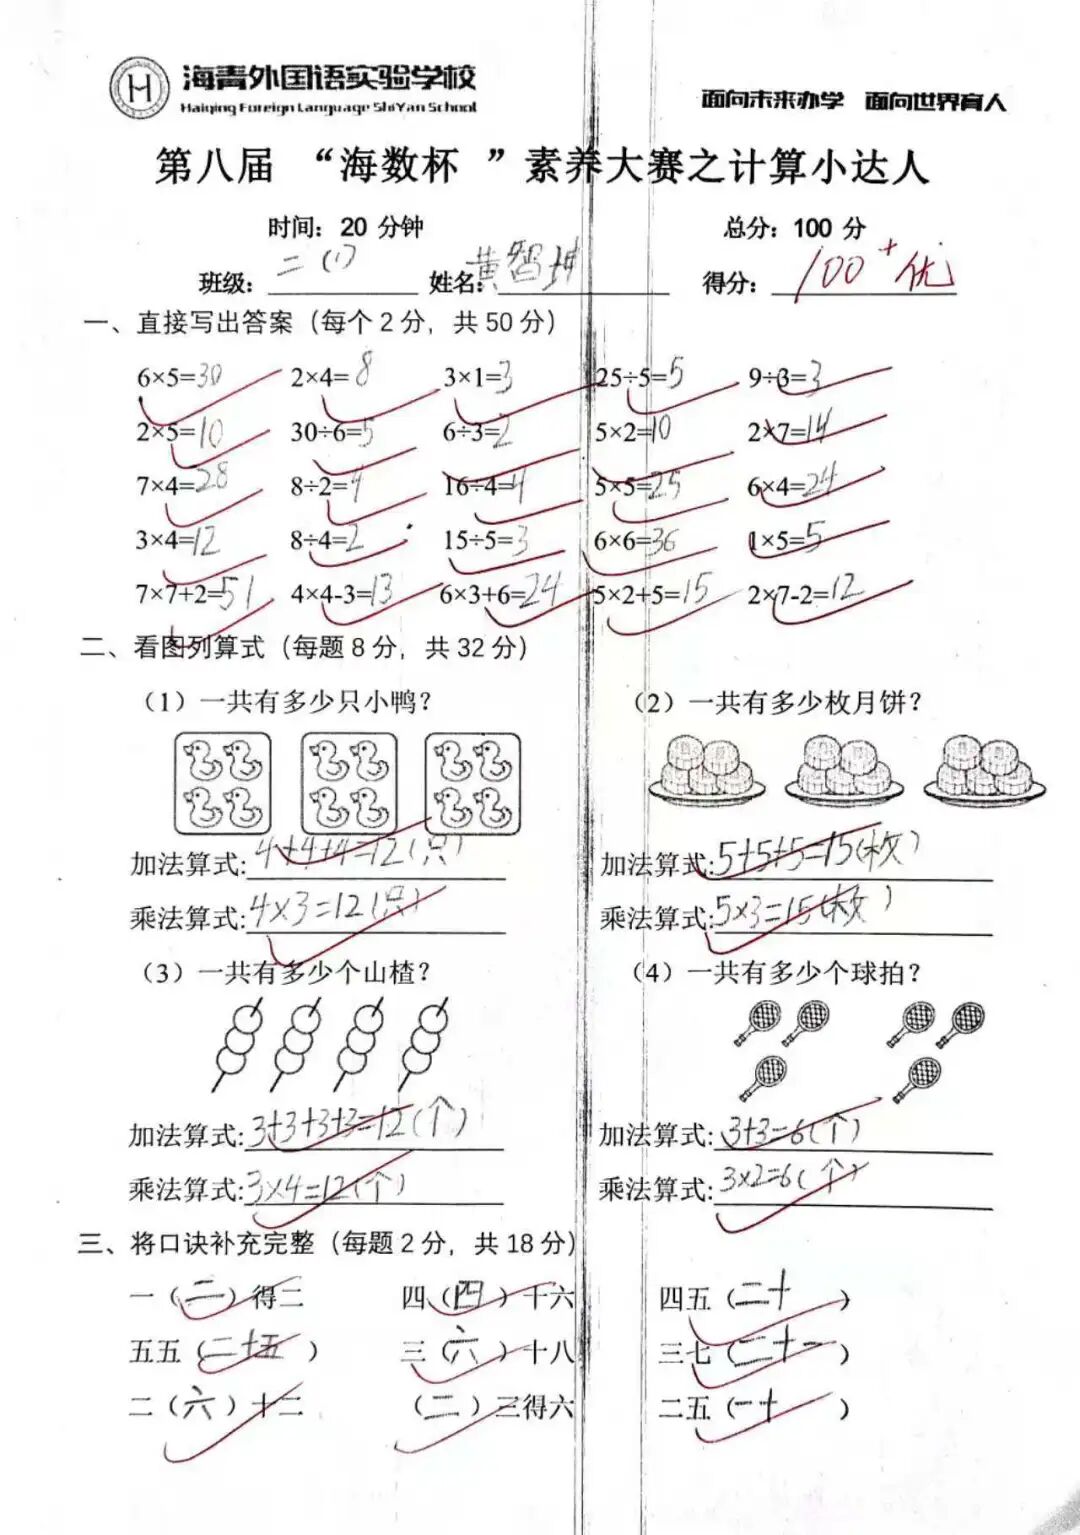 海青外国语实验学校
Haiqing Foreign Language ShiYan School
面向未来办学 面向世界育人
第八届 “海数杯 ”素养大赛之计算小达人
时间: 20 分钟 总分: 100 分
班级: 二(1) 姓名: 黄智坤 得分: 100+优
一、直接写出答案（每个2分，共50分）
6×5=30 2×4=8 3×1=3 25÷5=5 9÷3=3
2×5=10 30÷6=5 6÷3=2 5×2=10 2×7=14
7×4=28 8÷2=4 16÷4=4 5×5=25 6×4=24
3×4=12 8÷4=2 15÷5=3 6×6=36 1×5=5
7×7+2=51 4×4-3=13 6×3+6=24 5×2+5=15 2×7-2=12
二、看图列算式（每题8分，共32分）
（1）一共有多少只小鸭？ （2）一共有多少枚月饼？
加法算式: 4+4+4=12(只) 加法算式: 5+5+5=15(枚)
乘法算式: 4×3=12(只) 乘法算式: 5×3=15(枚)
（3）一共有多少个山楂？ （4）一共有多少个球拍？
加法算式: 3+3+3+3=12(个) 加法算式: 3+3=6(个)
乘法算式: 3×4=12(个) 乘法算式: 3×2=6(个)
三、将口诀补充完整（每题2分，共18分）
一（二）得二 四（四）十六 四五（二十）
五五（二十五） 三（六）十八 三七（二十一）
二（六）十二 （二）三得六 二五（一十）